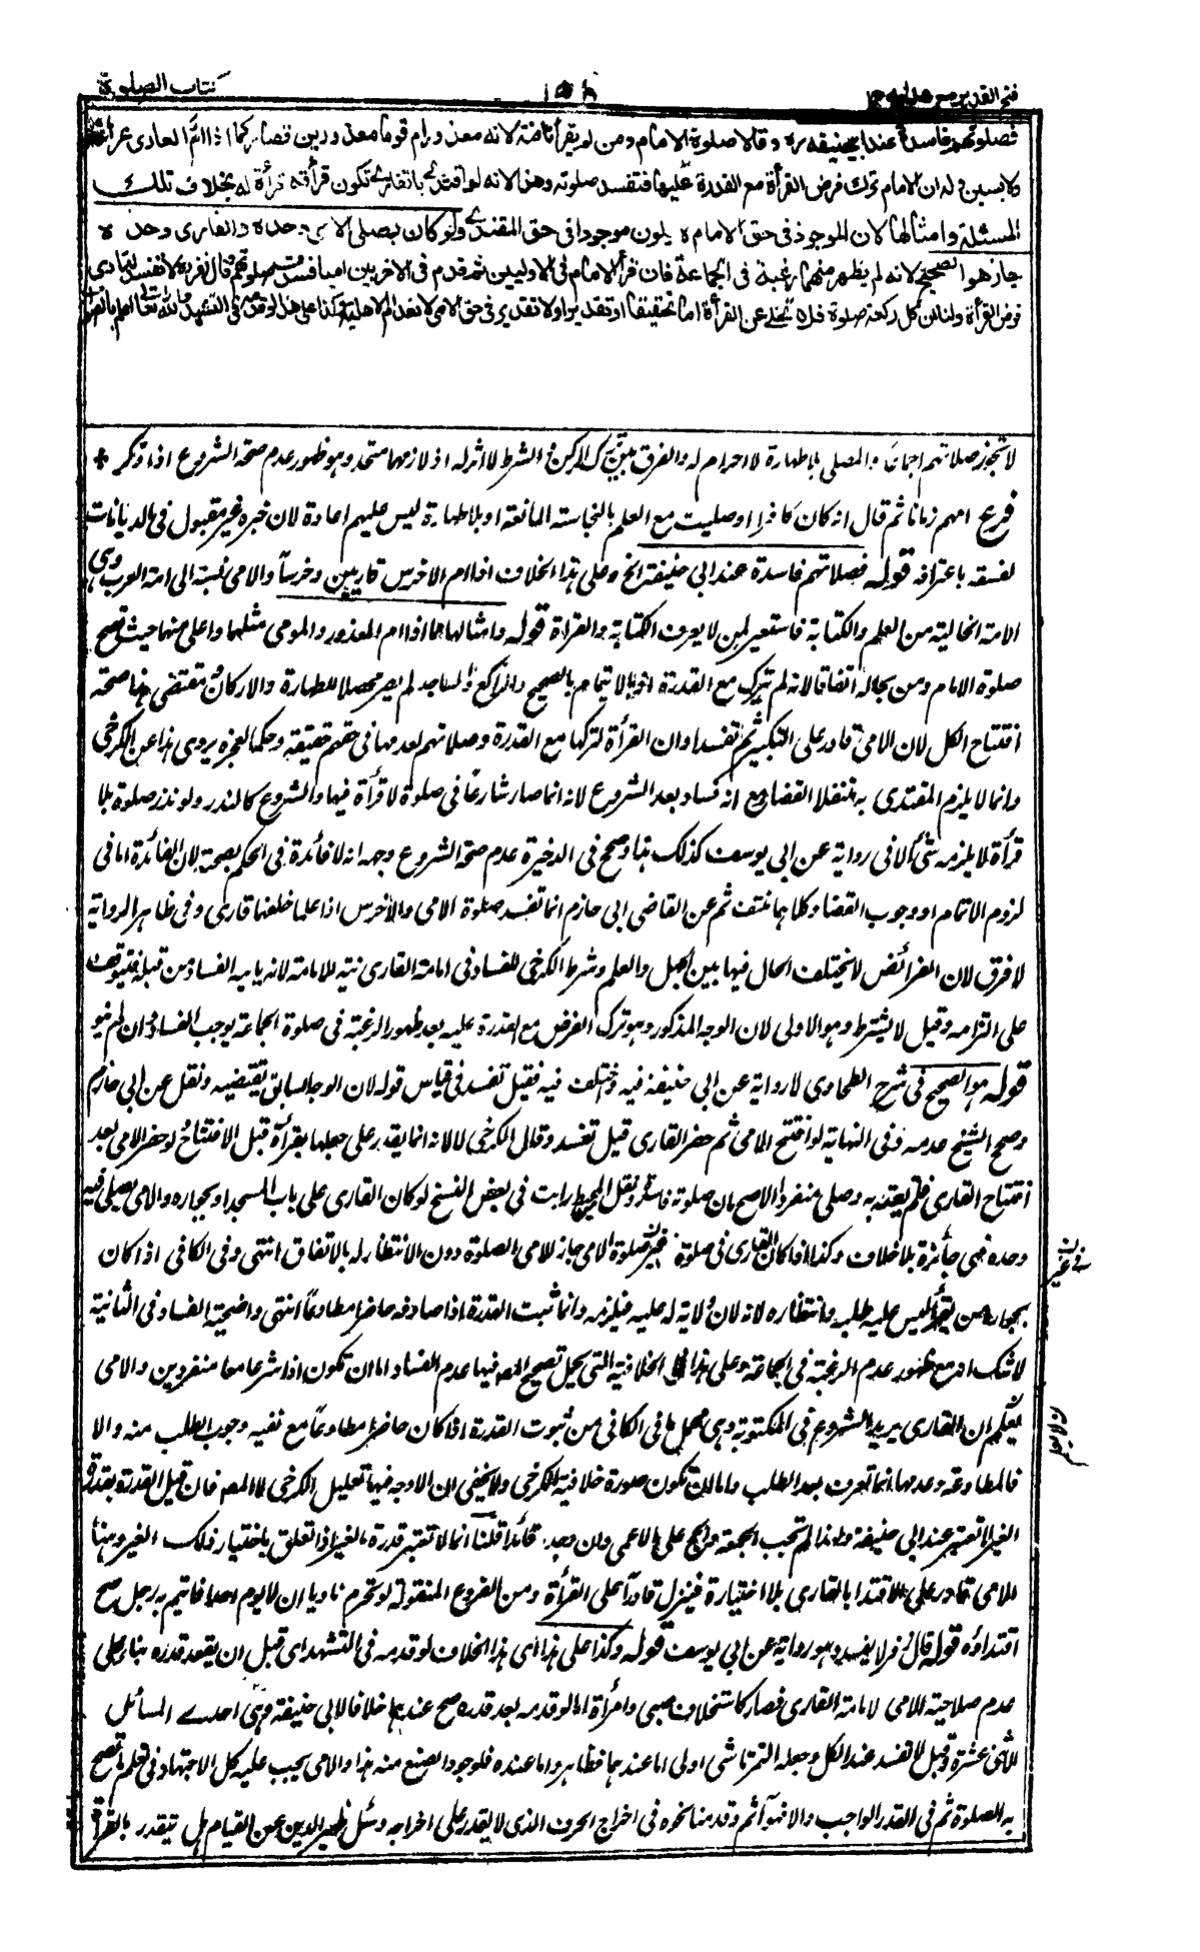 فتح القدير مع هدايه
كتاب الصلوة
فصلوتهم فاسدة عند ابيحنيفة وقالا صلوة الامام ومن لم يقرأ تامة لانه معذور ام قوما معذورين فصار كما اذا ام العارى عراة
ولابسين وله ان الامام ترك فرض القرأة مع القدرة عليها فتفسد صلوته وهذا لانه لو اقتدى بالقارى تكون قرأته قرأة له بخلاف تلك
المسئلة وامثالها لان الموجود فى حق الامام لا يكون موجودا فى حق المقتدى ولو كان يصلى الامى وحده والقارى وحده
جاز هو الصحيح لانه لم يظهر منهما رغبة فى الجماعة فان قرأ الامام فى الاوليين ثم قدم فى الاخريين اميا فسدت صلوتهم وقال زفر لا تفسد لتادى
فرض القرأة ولنا ان كل ركعة صلوة فلا تخلى عن القرأة اما تحقيقا او تقديرا ولا تقدير فى حق الامى لانعدام الاهلية وكذا على هذا لو قدمه فى التشهد والله تعالى اعلم بالصواب
لا تجوز صلاتهم اجماعا والمصلى بلا طهارة لا احرام له والفرق بين ترك الركن والشرط لا اثر له اذ لازمهما متحد وهو ظهور عدم صحة الشروع اذا ذكر
فرع امهم زمانا ثم قال انه كان كافرا او صليت مع العلم بالنجاسة المانعة او بلا طهارة ليس عليهم اعادة لان خبره غير مقبول فى الديانات
لفسقه باعترافه قوله فصلاتهم فاسدة عند ابى حنيفة الخ وعلى هذا الخلاف اذا ام الاخرس قاريين وخرسا والامى نسبة الى امة العرب وهى
الامة الخالية من العلم والكتابة فاستعير لمن لا يعرف الكتابة والقراة قوله وامثالها هما اذا ام المعذور والمومى مثلهما واعلى منهما حيث تصح
صلوة الامام ومن بحاله اتفاقا لانه لم يترك مع القدرة اذ بالائتمام بالصحيح والراكع والساجد لم يصر محصلا للطهارة والاركان مقتضى هذا صحة
افتتاح الكل لان الامى قادر على التكبير ثم تفسد اوان القرأة لتركها مع القدرة وصلاتهم لعدمها فى حقهم حقيقة وحكما لعجزه يروى هذا عن الكرخى
وانما لا يلزم المقتدى به متنفلا القضاء مع انه فساد بعد الشروع لانه انما صار شارعا فى صلوة لا قرأة فيها والشروع كالنذر ولو نذر صلوة بلا
قرأة لا يلزمه شئ الا فى رواية عن ابى يوسف كذلك هذا وصحح فى الذخيرة عدم صحة الشروع وجهه انه لا فائدة فى الحكم بصحته لان الفائدة اما فى
لزوم الاتمام او وجوب القضا وكلاهما منتف ثم عن القاضى ابى حازم انما تفسد صلوة الامى والاخرس اذا علما خلفهما قارى وفى ظاهر الرواية
لا فرق لان الفرائض لا يختلف الحال فيها بين الجهل والعلم وشرط الكرخى للفساد فى امامة القارى نيته للامامة لانه ياتيه الفساد من قبله فيتوقف
على التزامه وقيل لا يشترط وهو الاولى لان الوجه المذكور وهو ترك الفرض مع القدرة عليه بعد ظهور الرغبة فى صلوة الجماعة يوجب الفساد وان لم ينو
قوله هو الصحيح فى شرح الطحاوى لا رواية عن ابى حنيفة فيه واختلف فيه فقيل تفسد فى قياس قوله لان الوجه السابق يقتضيه ونقل عن ابى حازم
وصحح الشيخ عدمه وفى النهاية لو افتتح الامى ثم حضر القارى قيل تفسد وقال الكرخى لا لانه انما يقدر على جعلها بقرأة قبل الافتتاح ولو حضر الامى بعد
افتتاح القارى فلم يقتد به وصلى منفردا الاصح ان صلوته فاسدة ونقل المحيط رايت فى بعض النسخ لو كان القارى على باب المسجد او بجواره والامى يصلى فيه
وحده فهى جائزة بلا خلاف وكذا اذا كان القارى فى صلوة غير صلوة الامى جاز للامى الصلوة دون الانتظار له بالاتفاق انتهى وفى الكافى اذا كان
بجواره من يقرأ ليس عليه طلبه وانتظاره لانه لا ولاية له عليه فيلزمه وانما ثبت القدرة اذا صادفه حاضرا مطاوعا انتهى واضحية الفساد فى الثانية
لا شك انه مع ظهور عدم الرغبة فى الجماعة وعلى هذا الخلافية التى يحل تصحيح المص فيها عدم الفساد اما ان تكون اذا شرعا معا منفردين والامى
يعلم ان القارى يريد الشروع فى المكتوبة وهى محمل ما فى الكافى من ثبوت القدرة اذا كان حاضرا مطاوعا مع نفيه وجوب الطلب منه والا
فالمطاوعة وعدمها انما تعرف بعد الطلب واما ان تكون صورة خلافية الكرخى ولا يخفى ان الاوجه فيها تعليل الكرخى لا المص فان قيل القدرة بقدرة
الغير لا تعتبر عند ابى حنيفة ولهذا لم تجب الجمعة والحج على الاعمى وان وجد قائدا قلنا انما لا تعتبر قدرة الغير اذا تعلق باختيار ذلك الغير وهنا
الامى قادر على الاقتدا بالقارى بلا اختياره فينزل قادرا على القرأة ومن الفروع المنقولة لو تحرم ناويا ان لا يوم احدا فائتم به رجل صح
اقتداؤه قوله وقال زفر لا يفسد وهو رواية عن ابى يوسف قوله وكذا على هذا اى هذا الخلاف لو قدمه فى التشهد اى قبل ان يقعد قدره بناء على
عدم صلاحية الامى لامامة القارى فصار كاستخلاف صبى وامرأة اما لو قدمه بعد قدره صح عندهما خلافا لابى حنيفة وهى احدى المسائل
الاثنى عشرة وقيل لا تفسد عند الكل وجعله التمرتاشى اولى اما عندهما فظاهر واما عنده فلوجود الصنع منه هذا والامى يجب عليه كل الاجتهاد فى تعلم ما تصح
به الصلوة ثم فى القدر الواجب والا فهو آثم وقدمنا نحوه فى اخراج الحرف الذى لا يقدر على اخراجه وسئل ظهير الدين عن القيام هل يتقدر بالقرأة